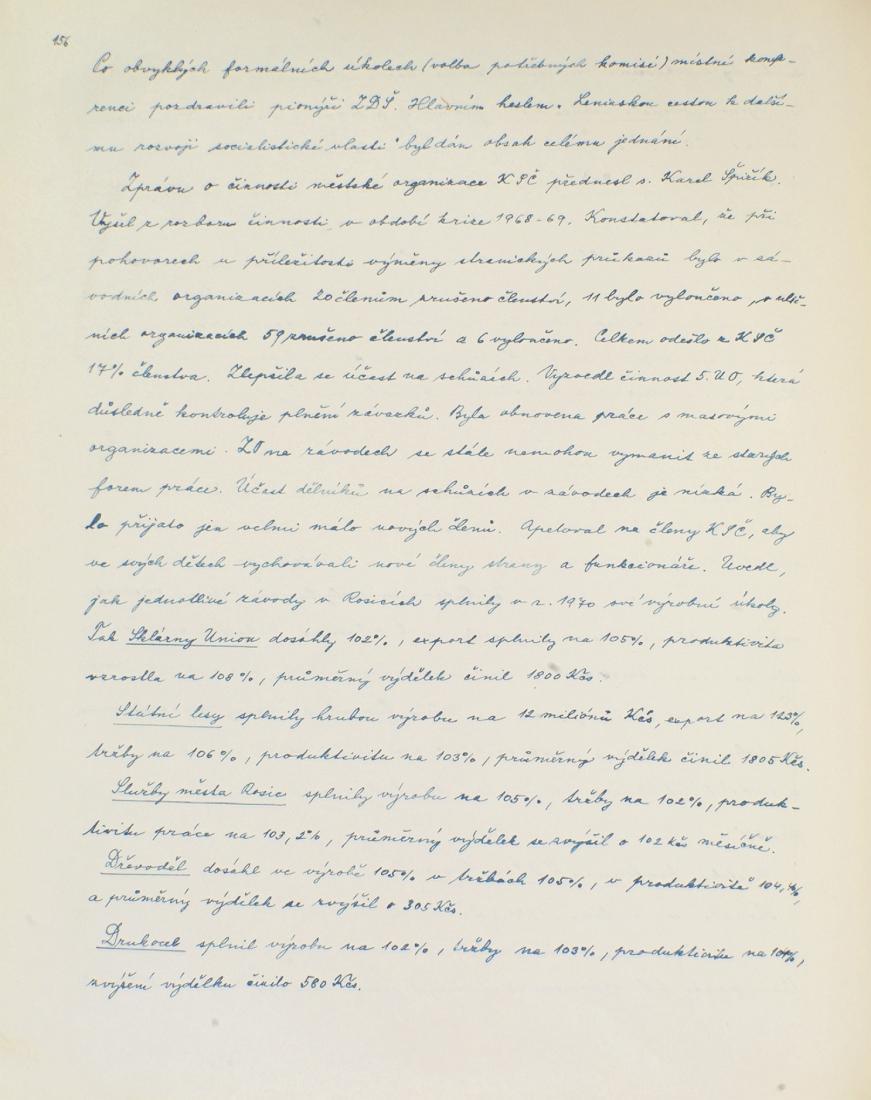 156
Po obvyklých formálních úkolech (volba potřebných komisí) místní konfe-
renci pozdravili pionýři ZDŠ. Hlavním heslem „Leninskou cestou k další-
mu rozvoji socialistické vlasti" byl dán obsah celému jednání.
Zprávu o činnosti městské organizace KSČ přednesl s. Karel Špiřík.
Vyšel z rozboru činnosti v období krize 1968-69. Konstatoval, že při
pohovorech u příležitosti výměny stranických průkazů bylo v zá-
vodních organizacích 20 členům zrušeno členství, 11 bylo vyloučeno, v ulič-
ních organizacích 59 zrušeno členství a 6 vyloučeno. Celkem odešlo z KSČ
17% členstva. Zlepšila se účast na schůzích. Vyzvedl činnost 5. UO, která
důsledně kontroluje plnění závazků. Byla obnovena práce s masovými
organizacemi. ZO na závodech se stále nemohou vymanit ze starých
forem práce. Účast dělníků na schůzích v závodech je nízká. By-
lo přijato jen velmi málo nových členů. Apeloval na členy KSČ, aby
ve svých dětech vychovávali nové členy strany a funkcionáře. Uvedl,
jak jednotlivé závody v Rosicích splnily v r. 1970 své výrobní úkoly.
Tak Sklárny Union dosáhly 102%, export splnily na 105%, produktivita
vzrostla na 108%, průměrný výdělek činil 1800 Kčs.
Státní lesy splnily hrubou výrobu na 12 miliónů Kčs, export na 123%,
tržby na 106%, produktivitu na 103%, průměrný výdělek činil 1805 Kčs.
Služby města Rosic splnily výrobu na 105%, tržby na 102%, produk-
tivitu práce na 103,2%, průměrný výdělek se zvýšil o 102 Kčs měsíčně.
Dřevoděl dosáhl ve výrobě 105% v tržbách 105%, v produktivitě 104,%,
a průměrný výdělek se zvýšil o 305 Kčs.
Drukocel splnil výrobu na 102%, tržby na 103%, produktivitu na
zvýšení výdělku činilo 580 Kčs.